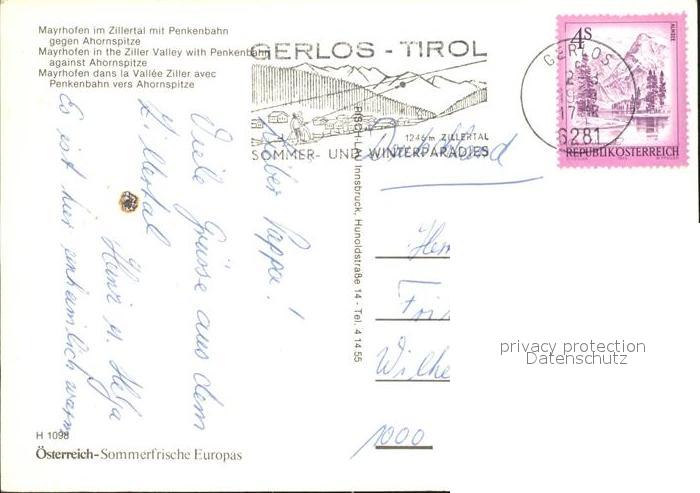 Mayrhofen im Zillertal mit Penkenbahn
gegen Ahornspitze
Mayrhofen in the Ziller Valley with Penkenbahn
against Ahornspitze
Mayrhofen dans la Vallée Ziller avec
Penkenbahn vers Ahornspitze
GERLOS - TIROL
1246m ZILLERTAL
SOMMER- UND WINTERPARADIES
GERLOS
17
6281
4S
ALMSEE
REPUBLIK ÖSTERREICH
Lieber Pappa!
Viele Grüsse aus dem
Zillertal
Heinz u. Helga
Es ist hier unheimlich warm
PISCH-LAV, Innsbruck, Hunoldstraße 14 - Tel. 4 14 55
Deutschland
Wilhe
1000
privacy protection
Datenschutz
H 1098
Österreich-Sommerfrische Europas